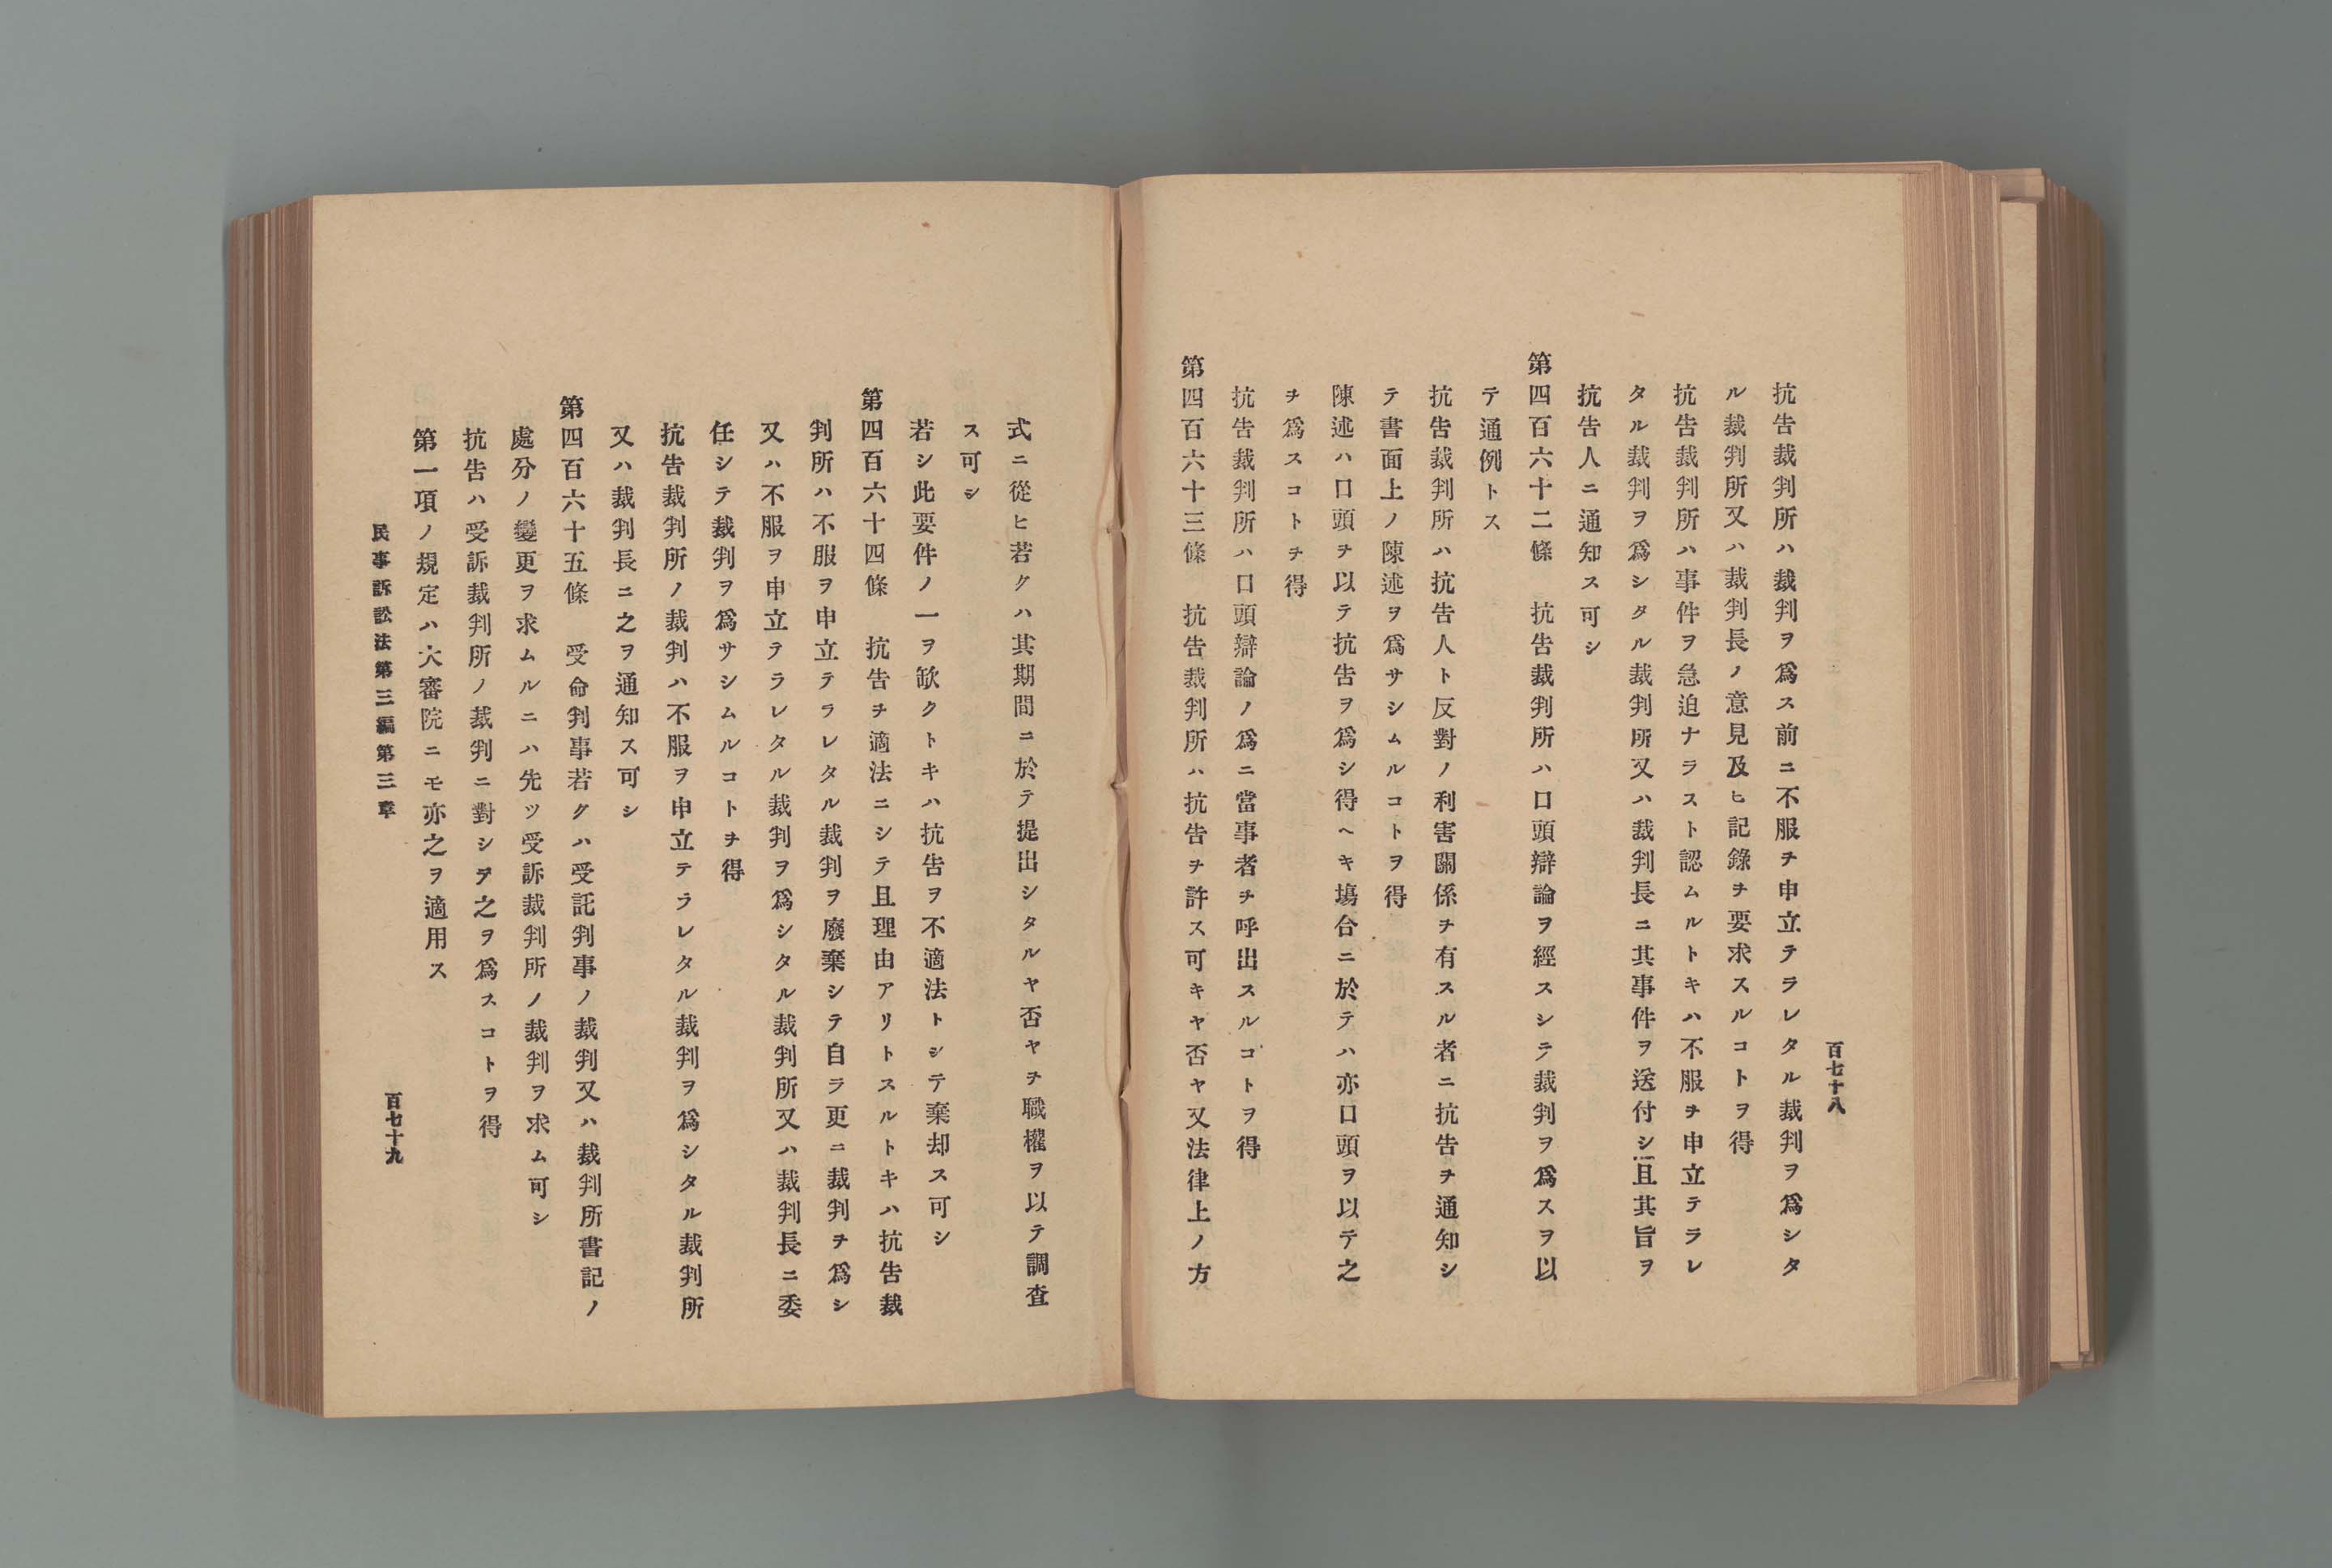 百七十八
抗告裁判所ハ裁判ヲ爲ス前ニ不服チ申立テラレタル裁判ヲ爲シタ
ル裁判所又ハ裁判長ノ意見及ヒ記錄チ要求スルコトヲ得
抗告裁判所ハ事件ヲ急迫ナラスト認ムルトキハ不服チ申立テラレ
タル裁判ヲ爲シタル裁判所又ハ裁判長ニ其事件ヲ送付シ且其旨ヲ
抗告人ニ通知ス可シ
第四百六十二條　抗告裁判所ハ口頭辯論ヲ經スシテ裁判ヲ爲スヲ以
テ通例トス
抗告裁判所ハ抗告人ト反對ノ利害關係チ有スル者ニ抗告チ通知シ
テ書面上ノ陳述ヲ爲サシムルコトヲ得
陳述ハ口頭チ以テ抗告ヲ爲シ得ヘキ塲合ニ於テハ亦口頭ヲ以テ之
ヲ爲スコトチ得
抗告裁判所ハ口頭辯論ノ爲ニ當事者チ呼出スルコトヲ得
第四百六十三條　抗告裁判所ハ抗告チ許ス可キヤ否ヤ又法律上ノ方
式ニ從ヒ若クハ其期間ニ於テ提出シタルヤ否ヤチ職權ヲ以テ調査
ス可シ
若シ此要件ノ一ヲ缼クトキハ抗告ヲ不適法トシテ棄却ス可シ
第四百六十四條　抗告チ適法ニシテ且理由アリトスルトキハ抗告裁
判所ハ不服ヲ申立テラレタル裁判ヲ廢棄シテ自ラ更ニ裁判チ爲シ
又ハ不服ヲ申立テラレタル裁判ヲ爲シタル裁判所又ハ裁判長ニ委
任シテ裁判ヲ爲サシムルコトチ得
抗告裁判所ノ裁判ハ不服ヲ申立テラレタル裁判ヲ爲シタル裁判所
又ハ裁判長ニ之ヲ通知ス可シ
第四百六十五條　受命判事若クハ受託判事ノ裁判又ハ裁判所書記ノ
處分ノ變更ヲ求ムルニハ先ツ受訴裁判所ノ裁判ヲ求ム可シ
抗告ハ受訴裁判所ノ裁判ニ對シテ之ヲ爲スコトヲ得
第一項ノ規定ハ大審院ニモ亦之ヲ適用ス
民事訴訟法第三編第三章
百七十九